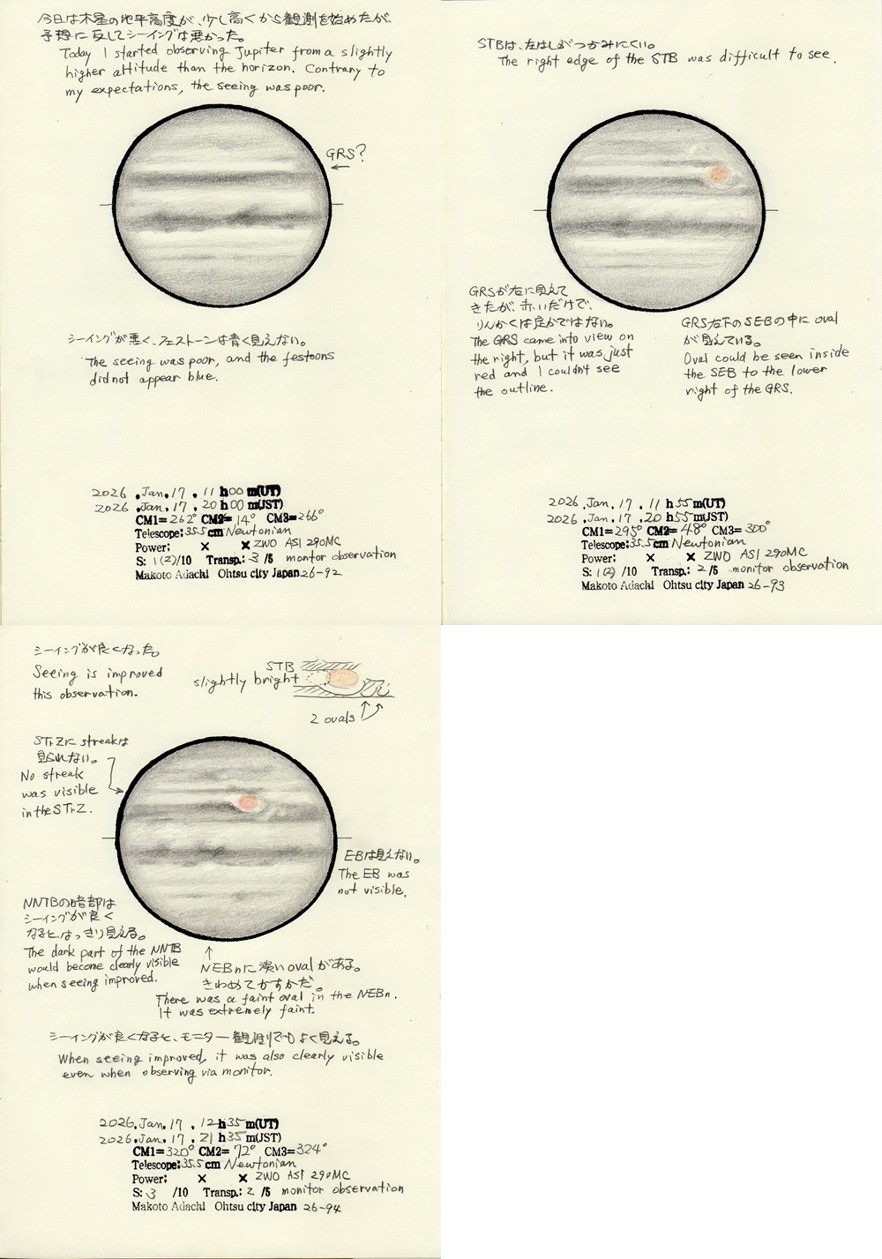 今日は木星の地平高度が、少し高くから観測を始めたが、
予想に反してシーイングは悪かった。
Today I started observing Jupiter from a slightly
higher altitude than the horizon. Contrary to
my expectations, the seeing was poor.
GRS?
シーイングが悪く、フェストーンは青く見えない。
The seeing was poor, and the festoons
did not appear blue.
2026 . Jan. 17 . 11 h 00 m(UT)
2026 . Jan. 17 . 20 h 00 m(JST)
CM1= 262° CM2= 14° CM3= 266°
Telescope: 35.5 cm Newtonian
Power: × × ZWO ASI 290MC
S: 1(2)/10 Transp.: 3 /5 monitor observation
Makoto Adachi Ohtsu city Japan 26-92
STBは、左はしがつかみにくい。
The right edge of the STB was difficult to see.
GRSが右に見えて
きたが、赤いだけで、
りんかくは定かではない。
The GRS came into view on
the right, but it was just
red and I couldn't see
the outline.
GRS右下のSEBの中に oval
が見えている。
Oval could be seen inside
the SEB to the lower
right of the GRS.
2026 . Jan. 17 . 11 h 55 m(UT)
2026 . Jan. 17 . 20 h 55 m(JST)
CM1= 295° CM2= 48° CM3= 300°
Telescope: 35.5 cm Newtonian
Power: × × ZWO ASI 290MC
S: 1(2) /10 Transp.: 2 /5 monitor observation
Makoto Adachi Ohtsu city Japan 26-93
シーイングが良くなった。
Seeing is improved
this observation.
STB
slightly bright
2 ovals
STrZに streakは
見られない。
No streak
was visible
in the STrZ.
EBは見えない。
The EB was
not visible.
NNTBの暗部は
シーイングが良く
なると、はっきり見える。
The dark part of the NNTB
would become clearly visible
when seeing improved.
NEBnに淡い oval がある。
きわめてかすかだ。
There was a faint oval in the NEBn.
It was extremely faint.
シーイングが良くなると、モニター観測でもよく見える。
When seeing improved, it was also clearly visible
even when observing via monitor.
2026 . Jan. 17 . 12 h 35 m(UT)
2026 . Jan. 17 . 21 h 35 m(JST)
CM1= 320° CM2= 72° CM3= 324°
Telescope: 35.5 cm Newtonian
Power: × × ZWO ASI 290MC
S: 3 /10 Transp.: 2 /5 monitor observation
Makoto Adachi Ohtsu city Japan 26-94